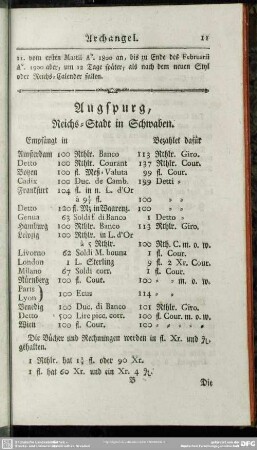 Archangel. 11
11. vom ersten Martii Aº. 1800 an, bis zu Ende des Februarii
Aº. 1900 aber, um 12 Tage später, als nach dem neuen Styl
oder Reichs-Calender fallen.
Augspurg,
Reichs-Stadt in Schwaben.
Empfangt in Bezahlet dafür
Amsterdam 100 Rthlr. Banco 113 Rthlr. Giro.
Detto 100 Rthlr. Courant 137 Rthlr. Cour.
Botzen 100 fl. Meß-Valuta 99 fl. Cour.
Cadix 100 Duc. de Camb. 199 Detti "
Frankfurt 104 fl. in n. L. d'Or
à 9½ fl. 100 " "
Detto 120 fl. Mz in Waarenz. 100 " "
Genua 63 Soldi f. di Banco 1 Detto "
Hamburg 100 Rthlr. Banco 113 Rthlr. Giro.
Leipzig 100 Rthlr. in L. d'Or
à 5 Rthlr. 100 Rth. C. m. o. w.
Livorno 62 Soldi M. buona 1 fl. Cour.
London 1 L. Sterling 9 fl. 2 Xr. Cour.
Milano 67 Soldi corr. 1 fl. Cour.
Nürnberg 100 fl. Cour. 100 fl. Cour.
Paris
Lyon 100 Ecus 114 " "
Venedig 100 Duc. di Banco 101 Rthlr. Giro.
Detto 500 Lire picc. corr. 100 fl. Cour. m. o. w.
Wien 100 fl. Cour. 100 fl. Cour.
Die Bücher und Rechnungen werden in fl. Xr. und ₰.
gehalten.
1 Rthlr. hat 1½ fl. oder 90 Xr.
1 fl. hat 60 Xr. und ein Xr. 4 ₰.
B Die